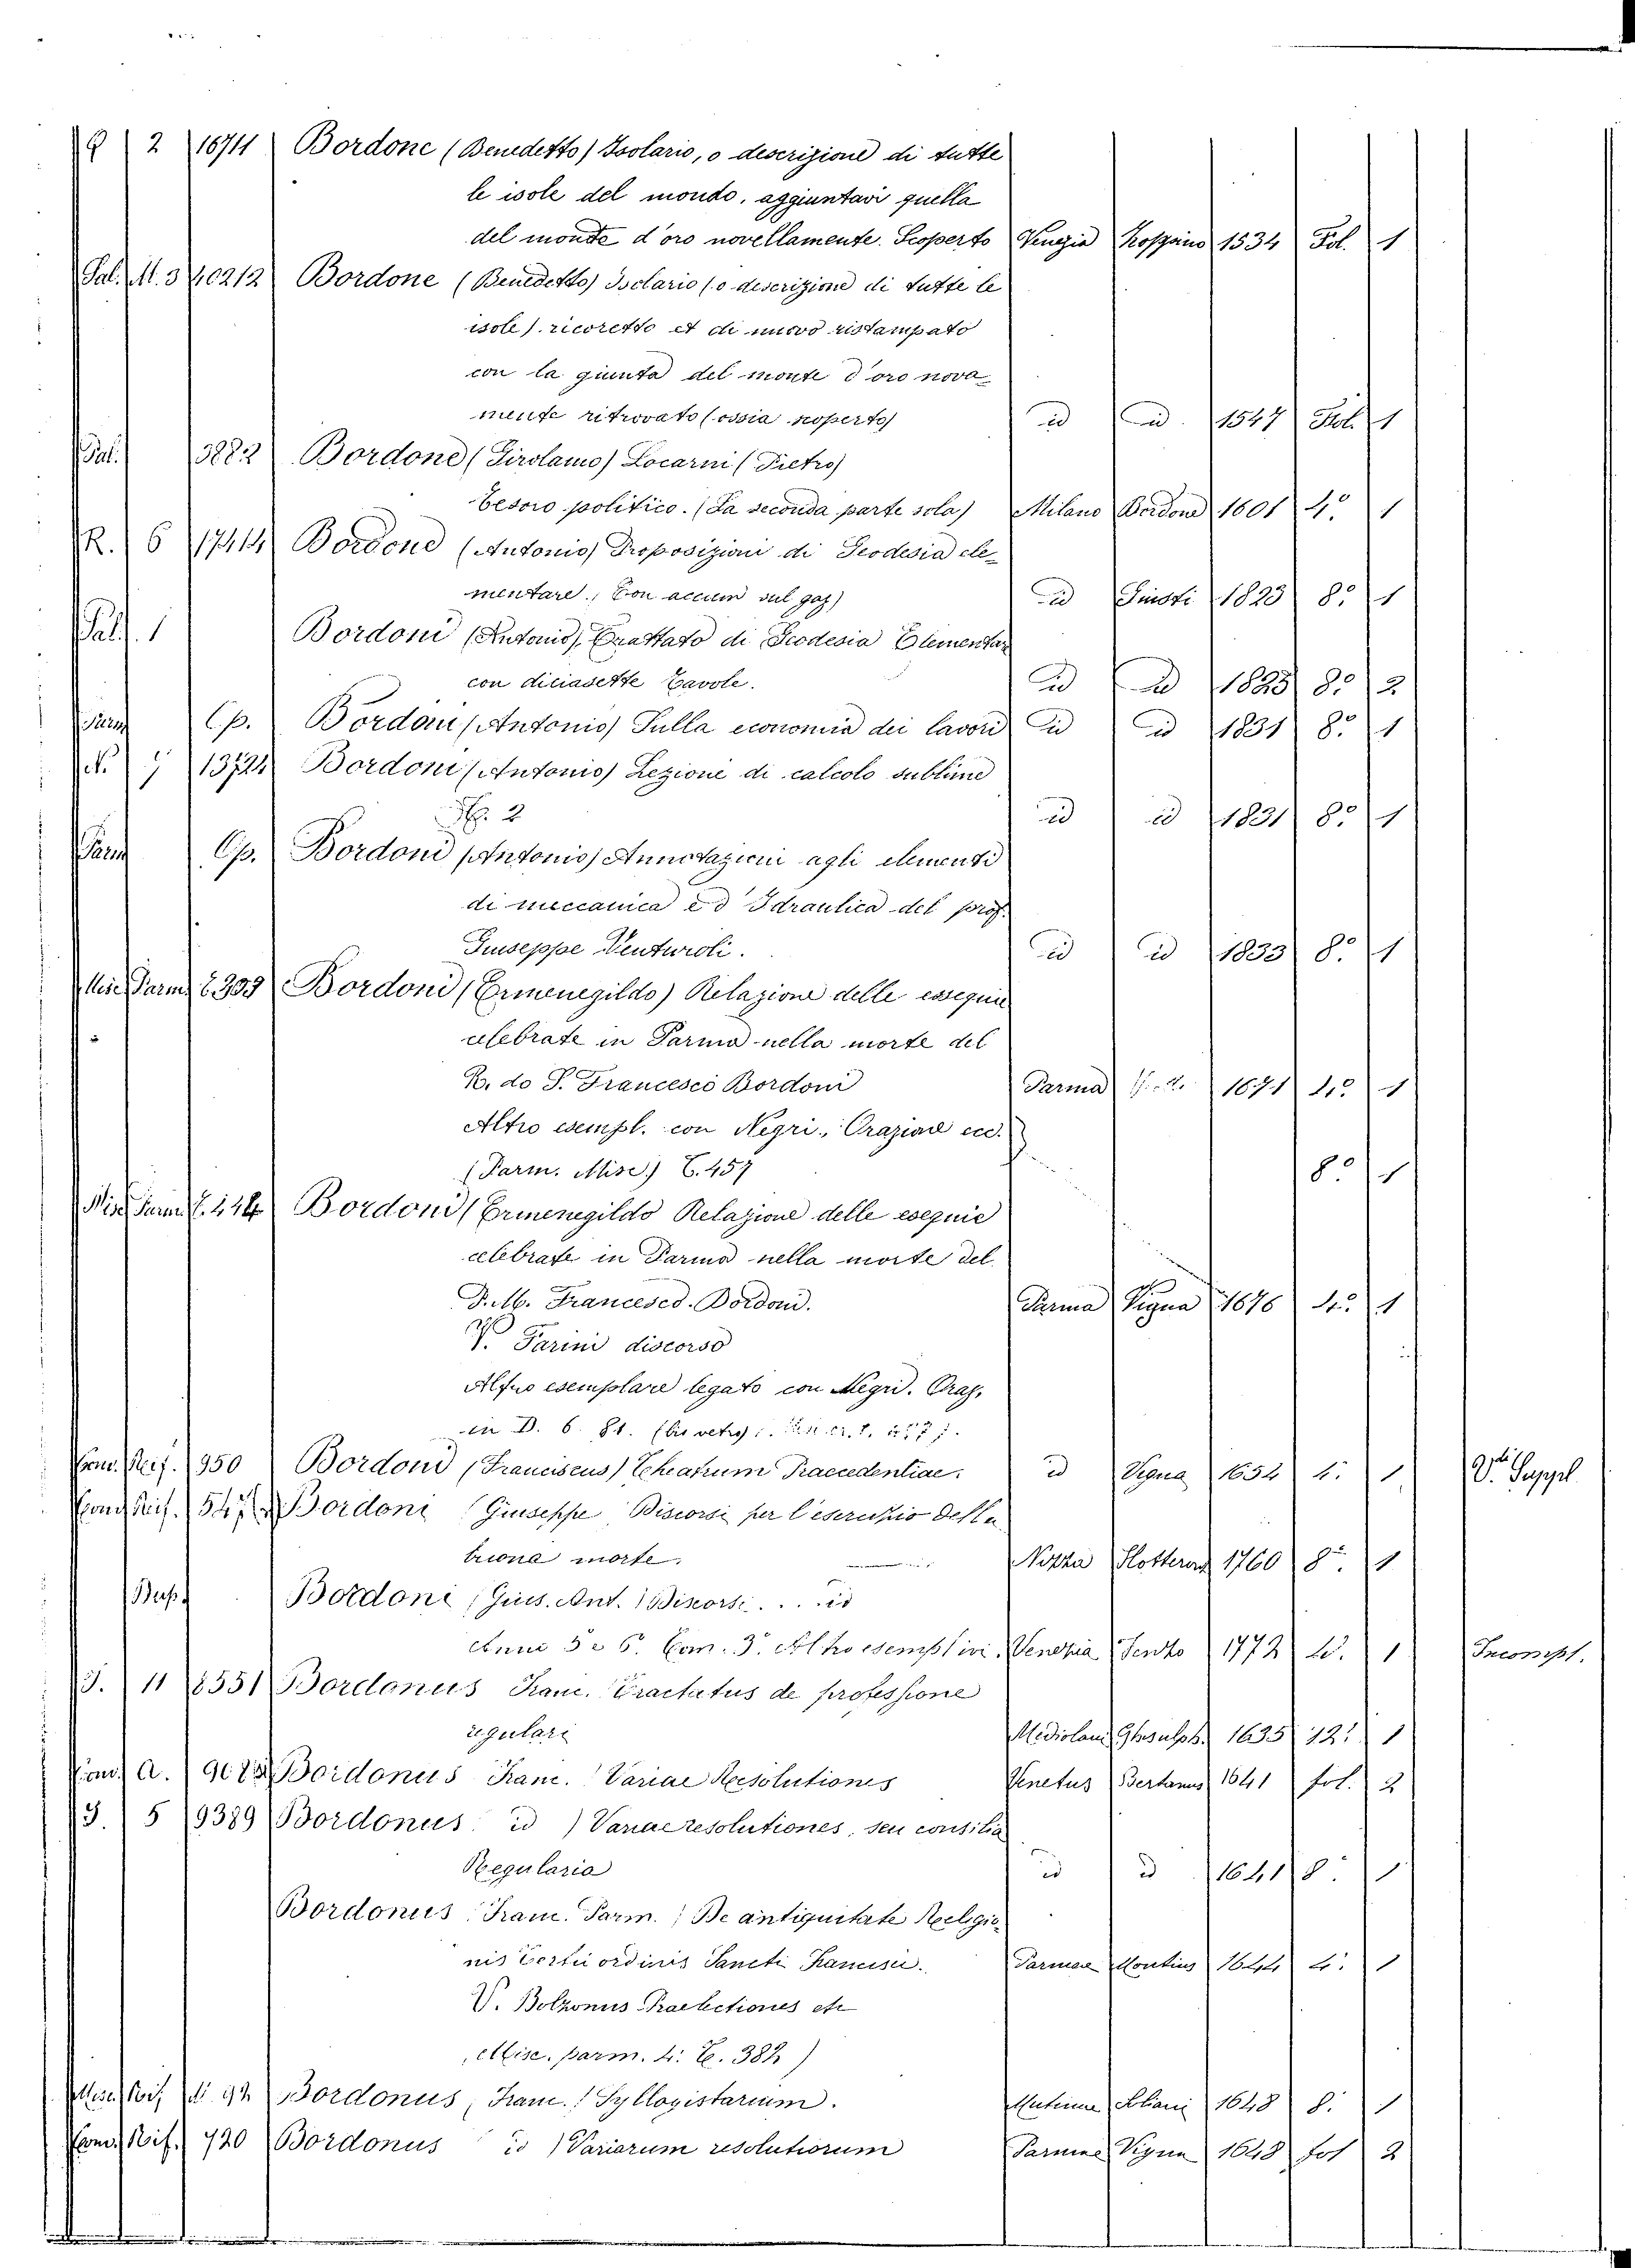 Q 2 16711 Bordone (Benedetto) Isolario, o descrizione di tutte
le isole del mondo, aggiuntavi quella
del monte d'oro novellamente. Scoperto Venezia 1534 Fol. 1
Pal. M. 3 10212 Bordone (Benedetto) Isolario (o descrizione di tutte le
isole). ricoretto et di nuovo ristampato
con la giunta del monte d'oro nova
mente ritrovato (ossia scoperto) id id. 1547 Fol. 1
Pal. 3882 Bordone (Girolamo) Locarni (Pietro)
Tesoro politico. (La seconda parte sola) Milano Bordone 1601 4º 1
R. 6 17414 Bordone (Antonio) Proposizioni di Geodesia ele-
mentare, con sul id Giusti 1823 8º 1
Pal. 1 Bordoni (Antonio), Trattato di Geodesia Elementar
con diciasette Tavole. id id 1825 8º 2
Parm Op. Bordoni (Antonio) Sulla economia dei lavori id id 1831 8º 1
13724 Bordoni (Antonio) Lezione di calcolo sublime
2 id id 1831 8º 1
Parm Op. Bordoni (Antonio) Annotazioni agli elementi
di meccanica ed Idraulica del prof.
Giuseppe Venturoli. id id 1833 8º 1
Misc Parm Bordoni (Ermenegildo) Relazione delle essequie
celebrate in Parma nella morte del
R. do P. Francesco Bordoni Parma 1671 4º 1
Altro esempl. con Negri, Orazione ecc.
(Parm. Misc.) E. 457 8º 1
Misc Parm Bordoni (Ermenegildo Relazione delle esequie
celebrate in Parma nella morte del
P. M. Francesco Bordoni. Parma Vigna 1676 4º 1
V. Parini discorso
Altro esemplare legato con Negri. Oraz.
in D. 6. 81.
Conv. Rif. 950 Bordoni (Franciscus) Theatrum Praecedentiae. id Vigna 1654 4: 1 V. Suppl
Conv. Rif. Bordoni (Giuseppe Discorsi per l'esercizio della
buona morte. Nizza 1760 8º. 1
Dup. Bordoni (Gius. Ant.) Discorsi... id
Anni 5 e 6. Tom. 3. Altro esempl ivi. Venezia 1772 1 Incompl.
J. 11 8551 Bordonus Franc. Tractatus de professione
regulari Mediolani 1635 12º 1
Conv. A. Bordonus Franc. Variae Resolutiones Venetus Bertanus 1641 fol. 2
J. 5 9389 Bordonus id ) Variae resolutiones, seu consilia
Regularia id id 1641 8: 1
Bordonus Franc. Parm. ) De antiquitate Religio
nis Tertii ordinis Sancti Francisci. Parmae 1644 4: 1
V. Bolzonus Praelectiones etc
(Misc. parm. 4: E. 382)
Misc. Rif 92 Bordonus, Franc. ) Syllogistarium. Mutinae 1648 8: 1
Conv. Rif. 720 Bordonus id ) Variarum resolutiorum Parmae Vigna 1648 fol 2